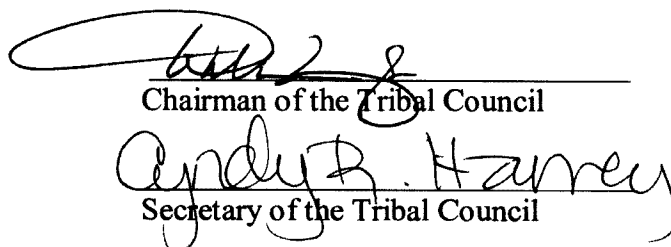 Chairman of the Tribal Council
Cyndy R. Harney
Secretary of the Tribal Council